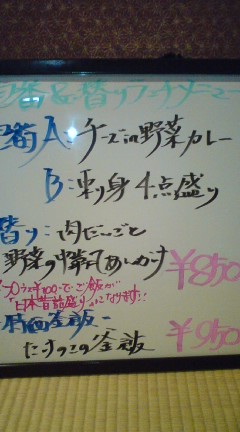 番&日替りランチメニュー
A:チーズin野菜カレー
B:刺身4点盛り
替り:肉だんごと
野菜の中華風あんかけ ¥850
"日本昔話盛り"になります!!
釜飯
たけのこの釜飯 ¥950